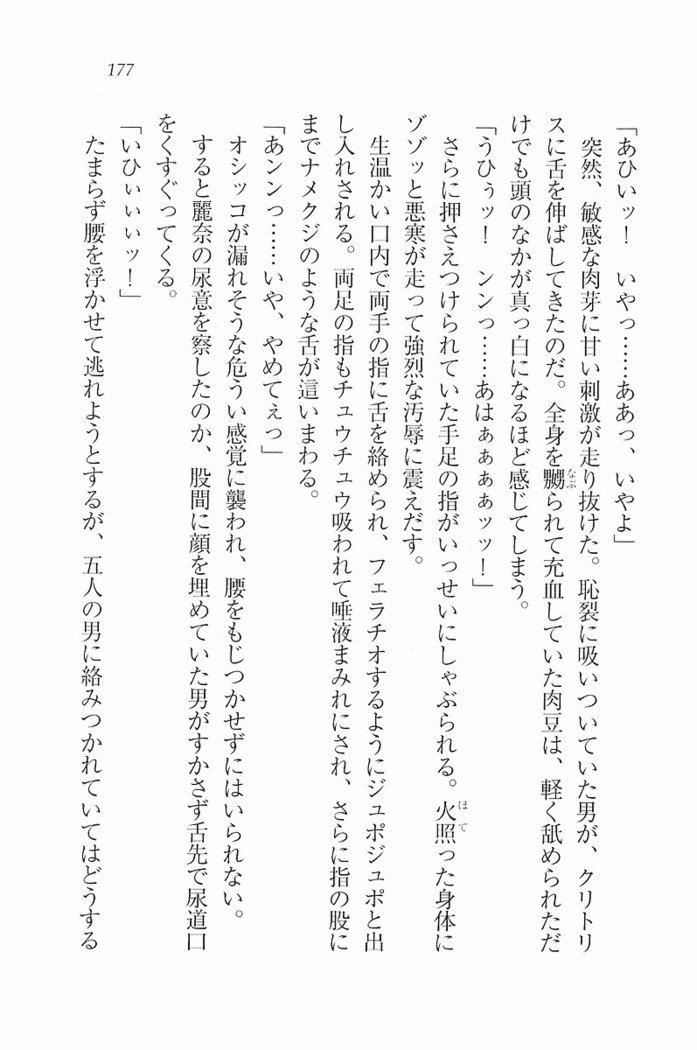 177
「あひいッ！　いやっ……ああっ、いやよ」
突然、敏感な肉芽に甘い刺激が走り抜けた。恥裂に吸いついていた男が、クリトリ
スに舌を伸ばしてきたのだ。全身を嬲られて充血していた肉豆は、軽く舐められただ
けでも頭のなかが真っ白になるほど感じてしまう。
「うひぅッ！　ンンっ……あはぁぁぁぁッッ！」
さらに押さえつけられていた手足の指がいっせいにしゃぶられる。火照った身体に
ゾゾッと悪寒が走って強烈な汚辱に震えだす。
生温かい口内で両手の指に舌を絡められ、フェラチオするようにジュポジュポと出
し入れされる。両足の指もチュウチュウ吸われて唾液まみれにされ、さらに指の股に
までナメクジのような舌が這いまわる。
「あンンっ……いや、やめてぇっ」
オシッコが漏れそうな危うい感覚に襲われ、腰をもじつかせずにはいられない。
すると麗奈の尿意を察したのか、股間に顔を埋めていた男がすかさず舌先で尿道口
をくすぐってくる。
「いひぃぃぃッ！」
たまらず腰を浮かせて逃れようとするが、五人の男に絡みつかれていてはどうする